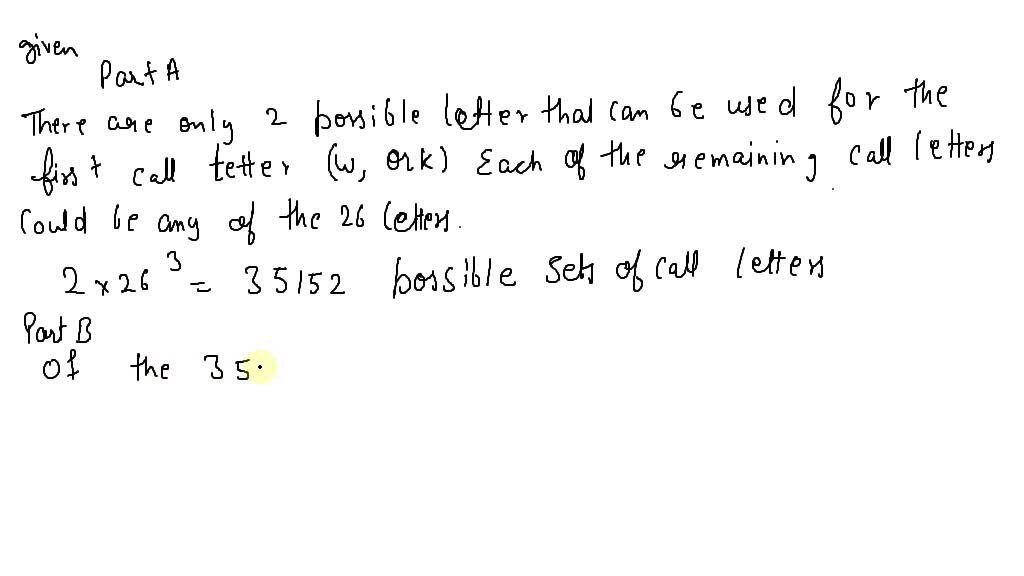 given
Part A
There are only 2 possible letter that can be used for the
first call tetter (w, or k) Each of the remaining call letters
Could be any of the 26 letters.
2 × 26³ = 35152 possible sets of call letters
Part B
Of the 35